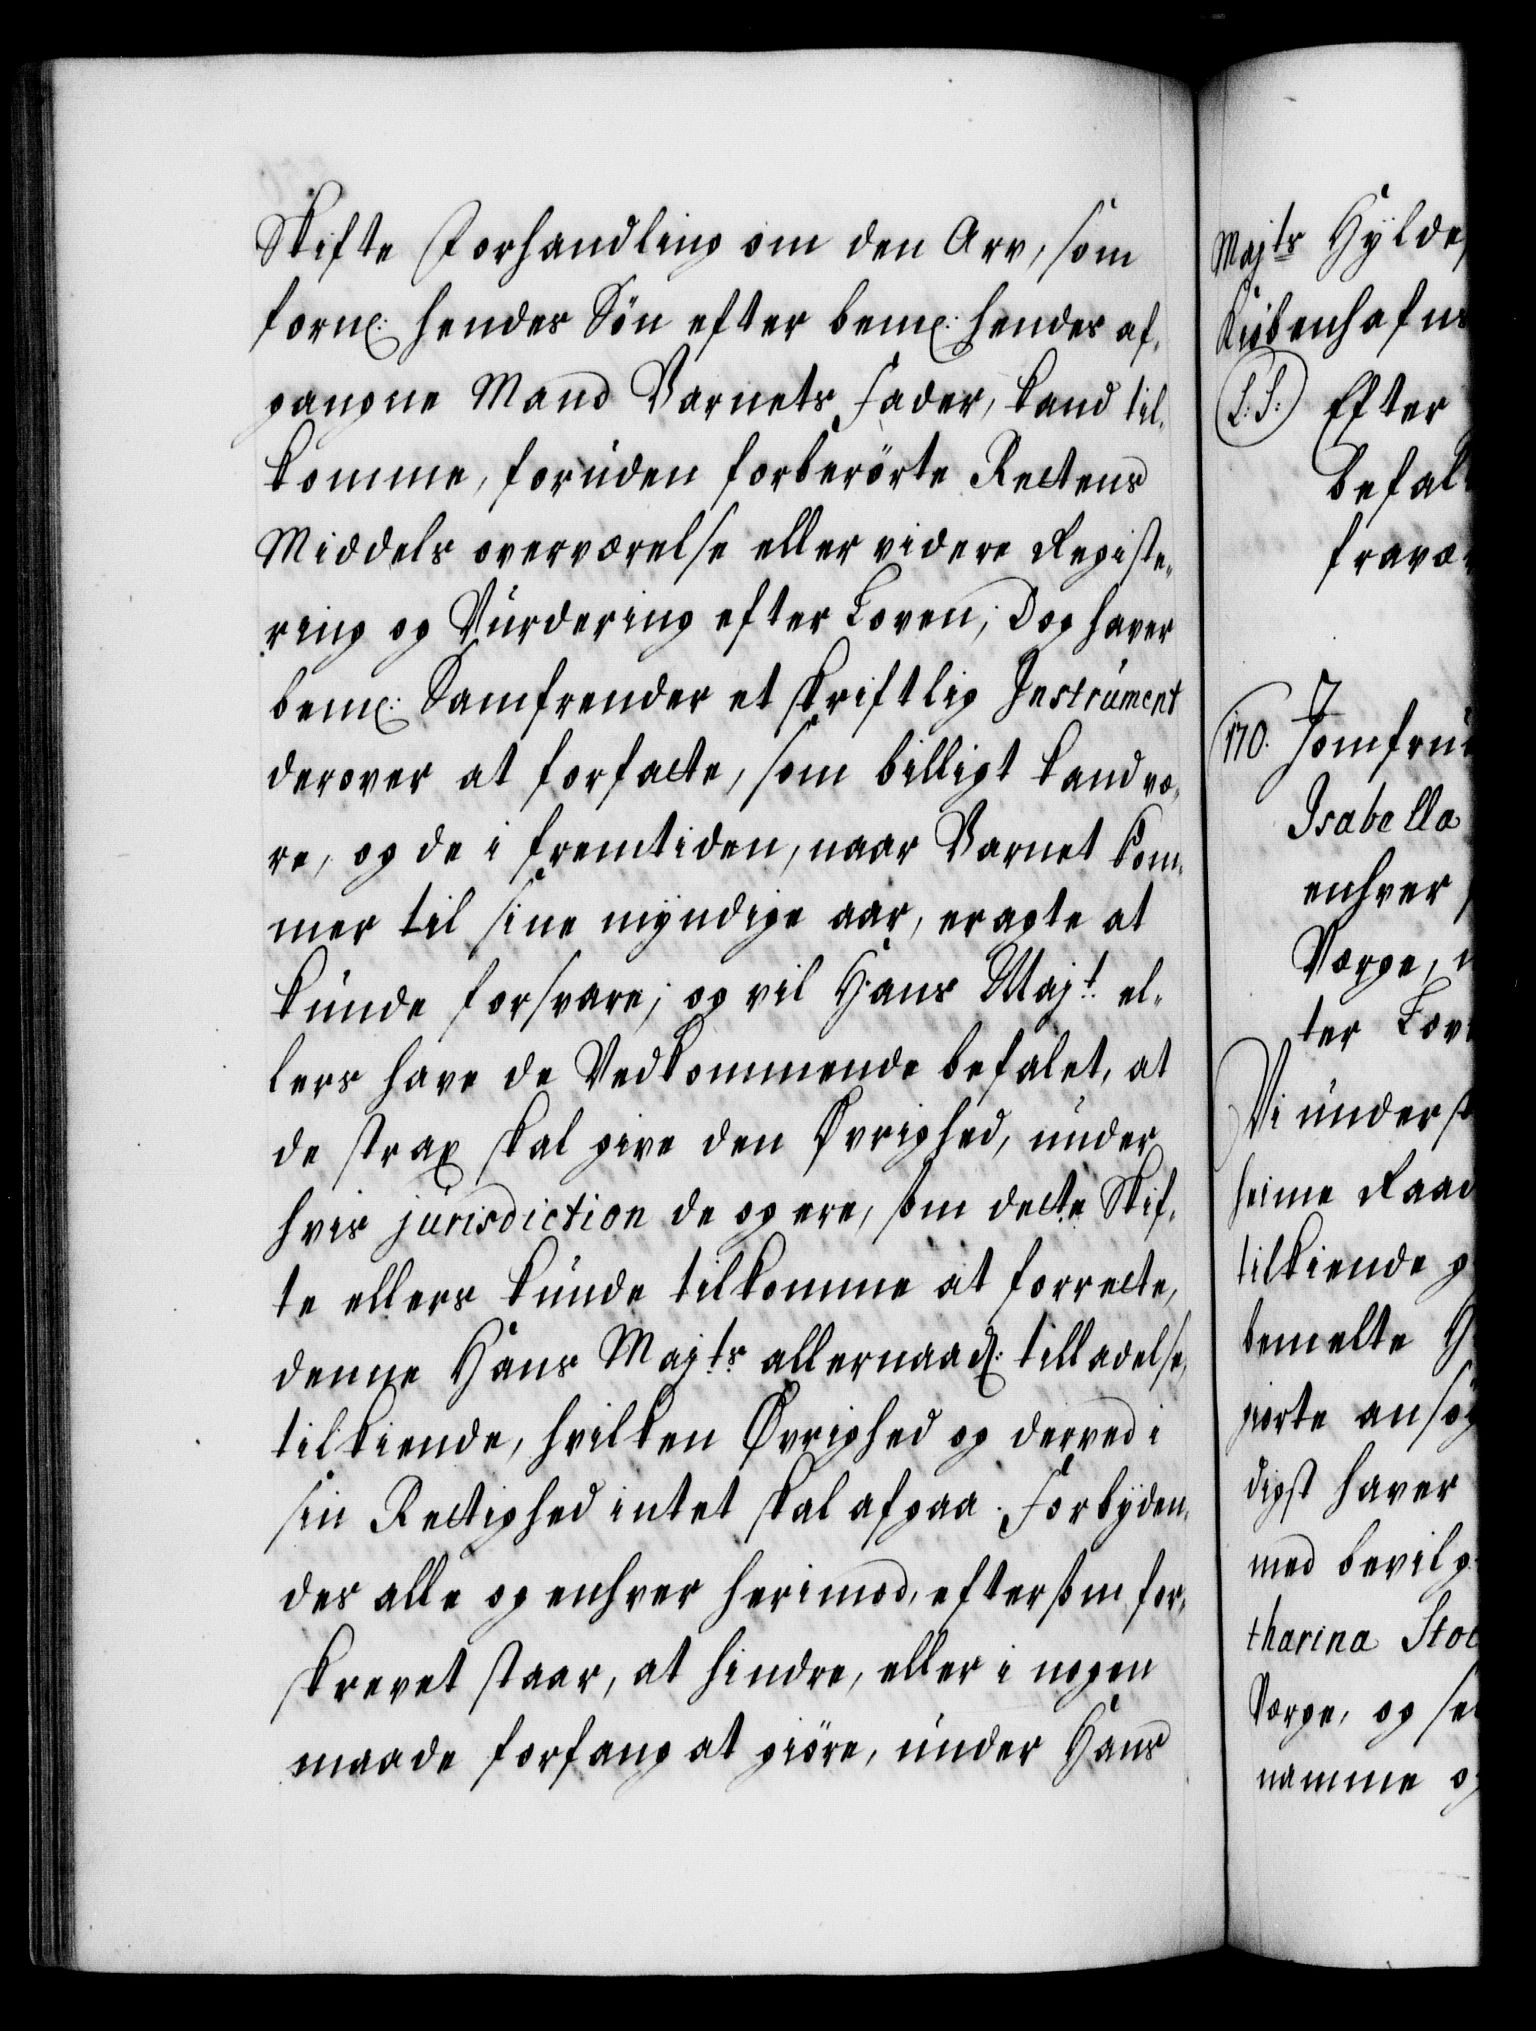 Skifte Forhandling om den Arv, som
forne: hendes Sön efter beme: hendes af-
gangne Mand Barnets Fader, kand til-
komme, foruden forberörte Rettens
Middels overværelse eller videre Registe-
ring og Vurdering efter Loven; Dog haver
beme: Samfrender et skriftlig Instrument
derover at forfatte, som billigt kand væ-
re, og de i fremtiden, naar Barnet kom-
mer til sine myndige aar, eragte at
kunde forsvare; og vil Hans Majt: el-
lers have de Vedkommende befalet, at
de strax skal give den Øvrighed, under
hvis jurisdiction de og ere, som dette Skif-
te ellers kunde tilkomme at forrette,
denne Hans Majts: allernaad: tilladelse,
tilkiende, hvilken Øvrighed og derved i
sin Rettighed intet skal afgaa. Forbyden-
des alle og enhver herimod, eftersom for-
skrevet staar, at hindre, eller i nogen
maade forfang at giöre, under Hans
Majts Hylde
Kiöbenhafns
(L.S.) Efter
befal
fravæ
170. Jomfru
Isabella
enhver
Værge,
ter Lov
Vi underst
heime Raad
tilkiende g
bemelte H
giorte ansög
digst haver
med bevilg
tharina Stoc
Værge, og se
namme og